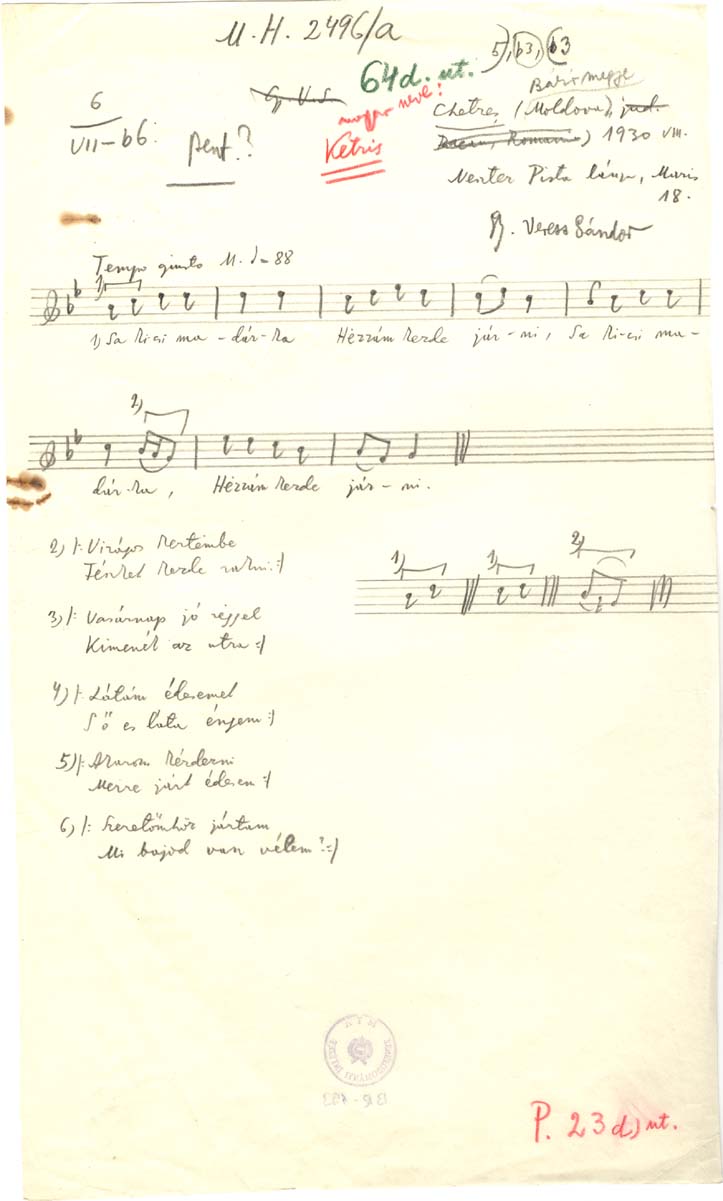 M. H. 2496/a
64 d. ut.
5), b3, b3
6
VII–b6.
pent?
Gy. V. S.
magyar neve:
Ketris
Bákó megye
Chetreș (Moldova), jud.
Bacău, Romania) 1930 VIII.
Neszter Pista lánya, Maris
18.
Gy. Veress Sándor
Tempo giusto M. ♩=88
1)
1) Sa kicsi ma - dár-ka Hëzzám kezde jár - ni, Sa kicsi ma -
2)
dár-ka, Hëzzám kezde jár - ni.
2) /: Virágos kertembe
Fészket kezde rakni. :/
3) /: Vasárnap jó réggel
Kimenék az utra :/
4) /: Látám édesemet
S ő es láta éngem :/
5) /: Akarom kérdezni
Merre járt édesem :/
6) /: Szeretőmhöz jártam
Mi bajod van vélem? :/
1) 1) 2)
P. 23 d) ut.